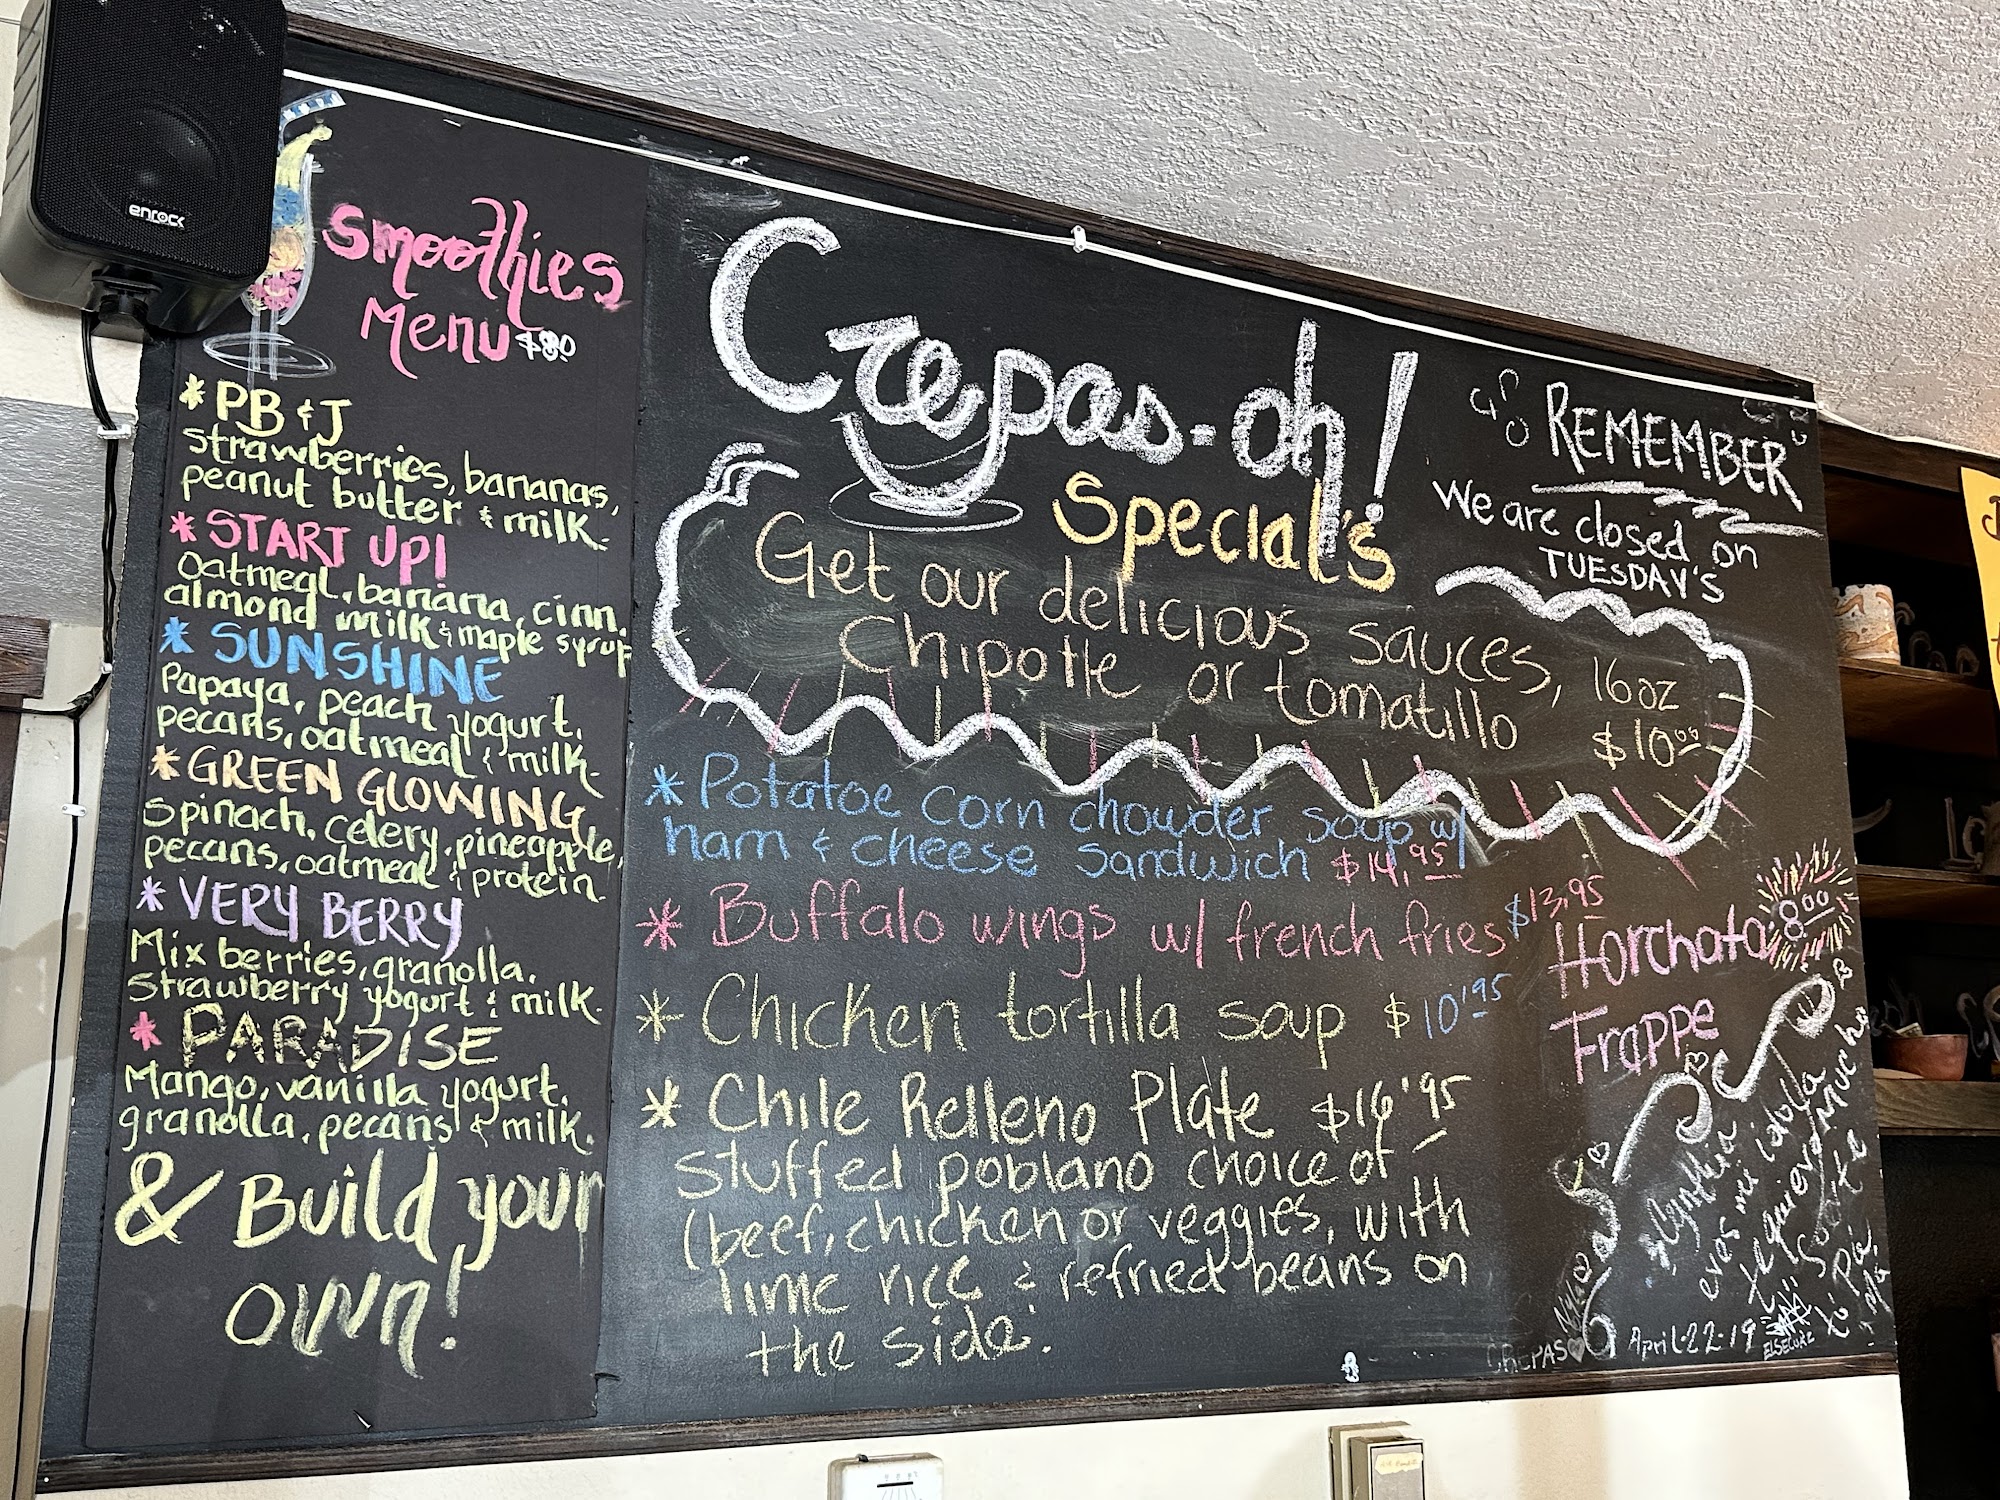 enrock
Smoothies
Menu $8.0
* PB & J
strawberries, bananas,
peanut butter & milk.
* START UP!
oatmeal, banana, cinn.
almond milk & maple syrup
* SUNSHINE
Papaya, peach yogurt,
pecans, oatmeal & milk.
* GREEN GLOWING
Spinach, celery, pineapple,
pecans, oatmeal & protein.
* VERY BERRY
Mix berries, granolla,
Strawberry yogurt & milk.
* PARADISE
Mango, vanilla yogurt,
granolla, pecans & milk.
& Build your
own!
Crepas-oh!
Special's
Get our delicious sauces,
Chipotle or tomatillo
16oz
$10.00
* Potatoe corn chowder soup w/
ham & cheese sandwich $14.95
* Buffalo wings w/ french fries $13.95
* Chicken tortilla soup $10.95
* Chile Relleno Plate $16.95
stuffed poblano choice of
(beef, chicken or veggies, with
lime rice & refried beans on
the side.
REMEMBER
We are closed on
TUESDAY'S
Horchata 8.00
Frappe
Cynthia
eres mi idola
te quiero mucho
CREPAS
April-22-19